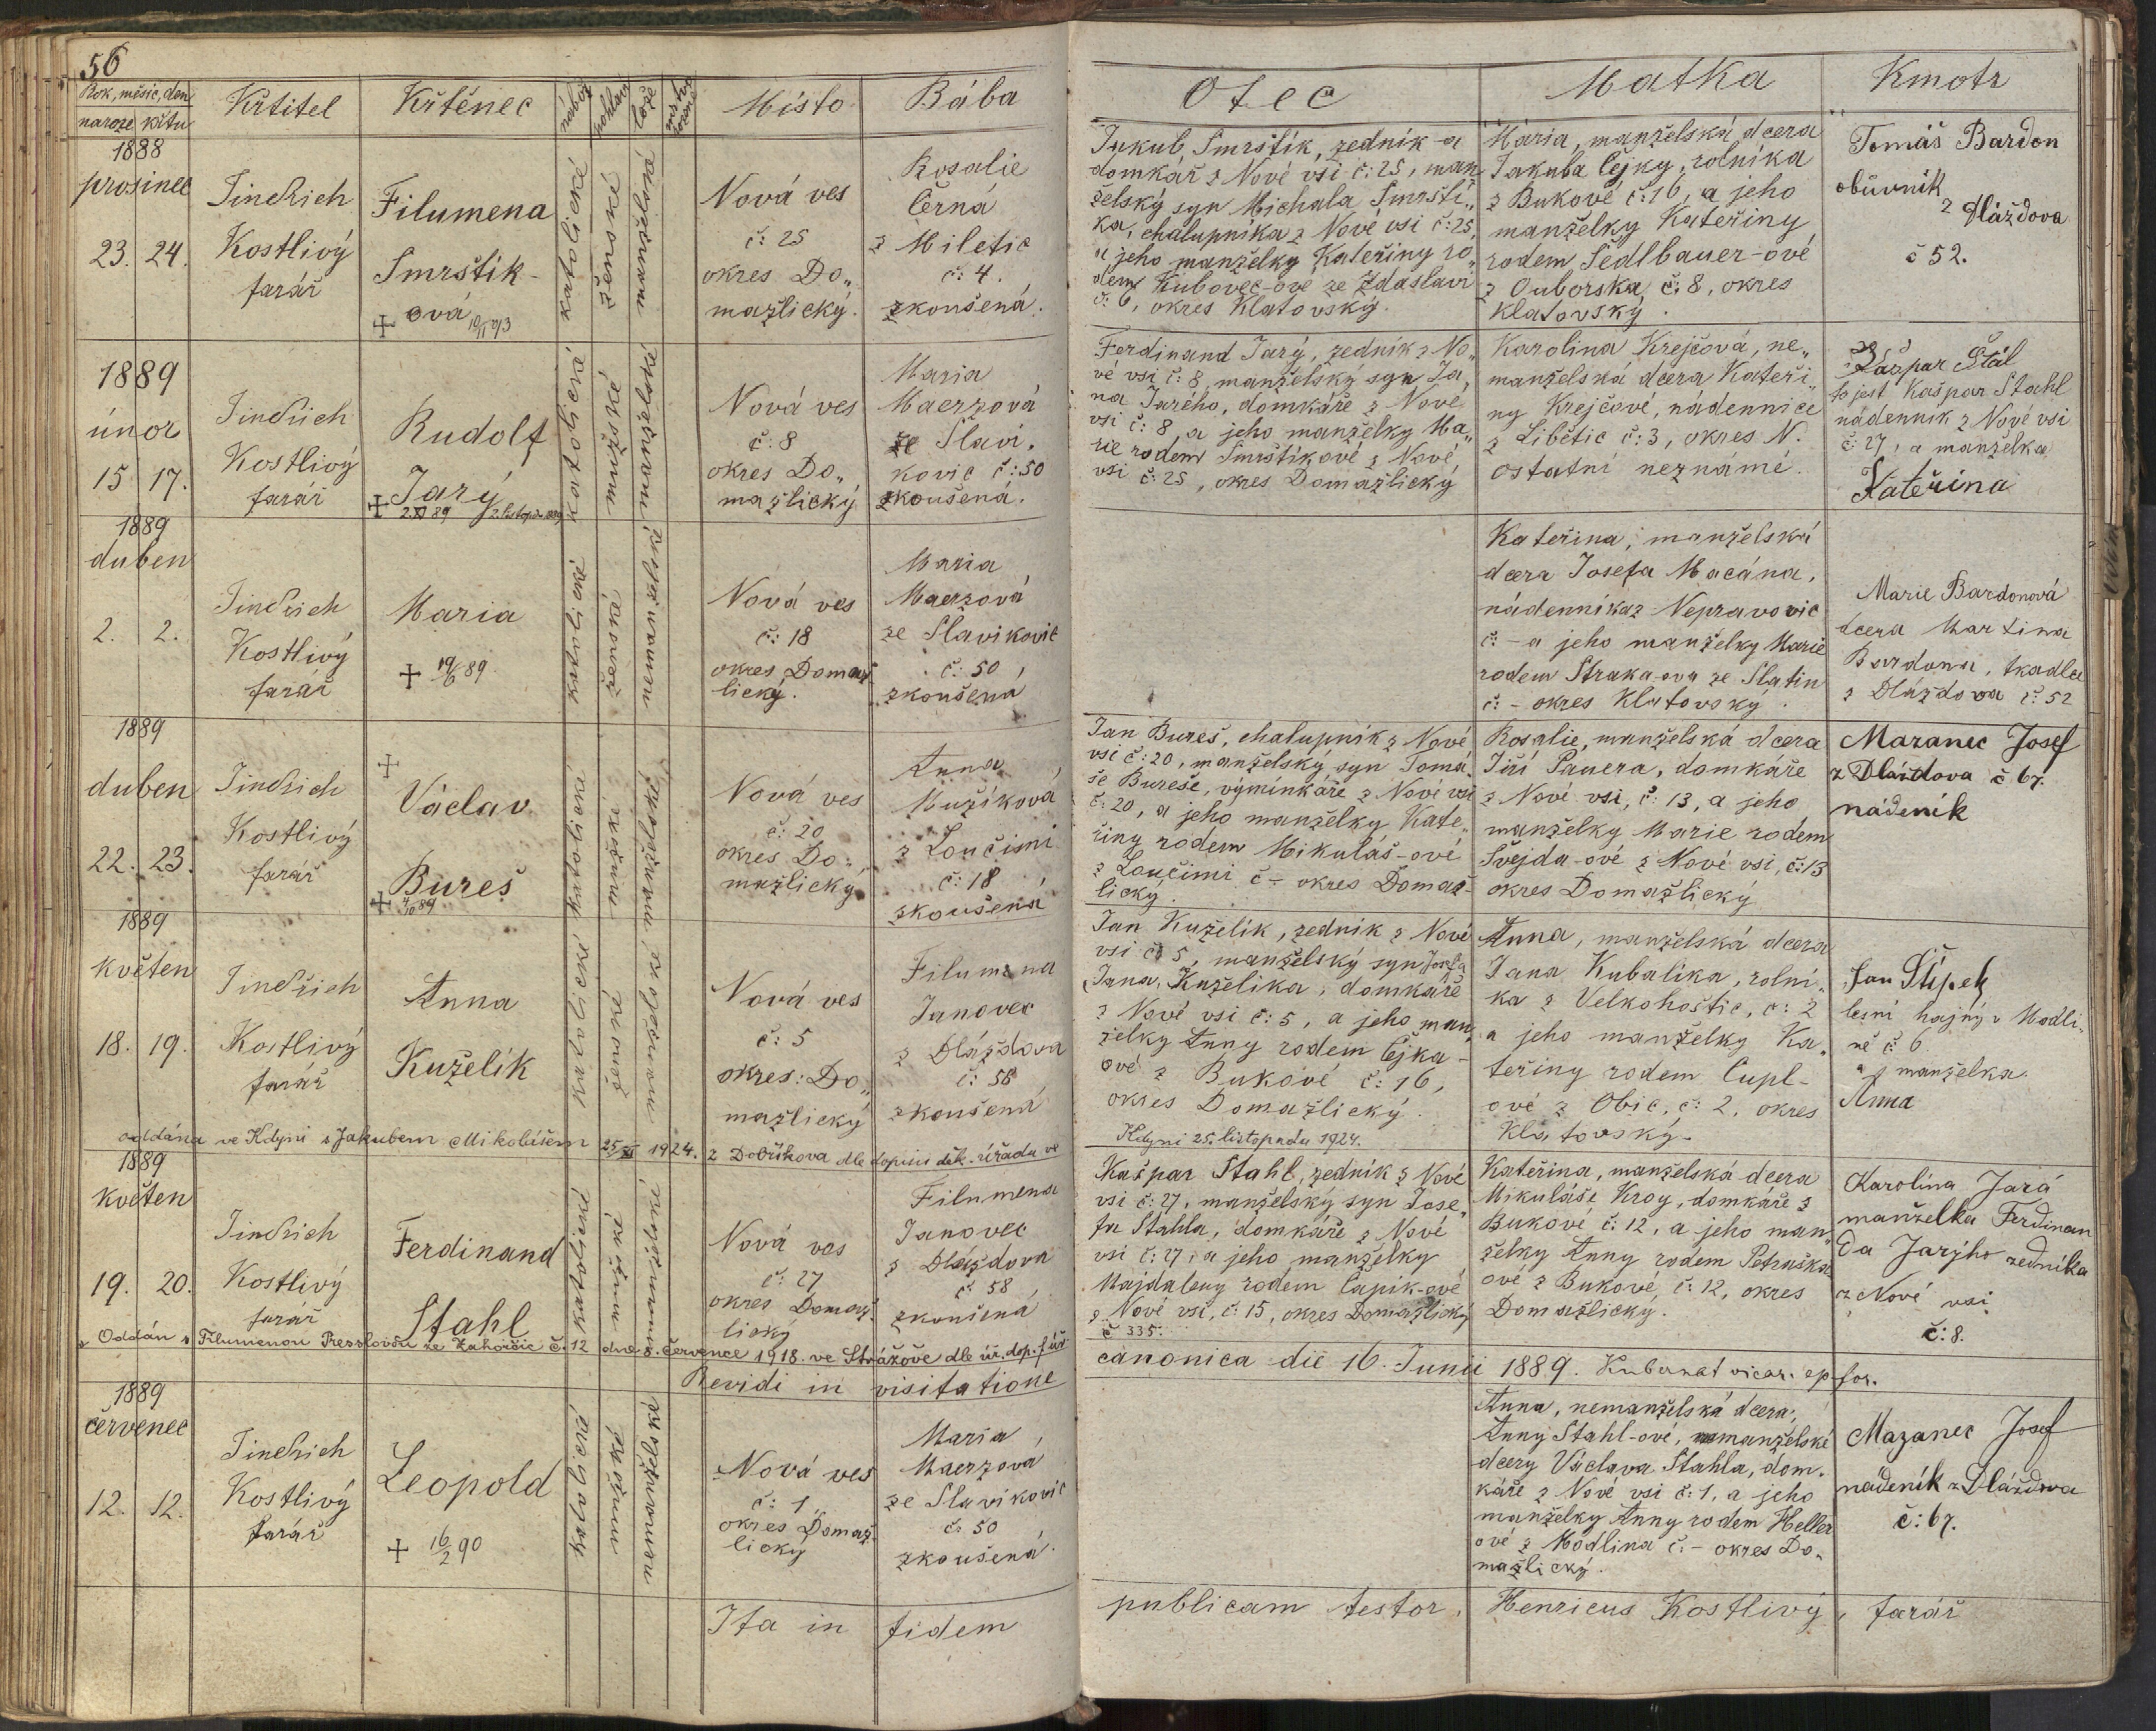 56
Rok, měsíc, den
naroze křtu
Křtitel
Křtěnec
nábož
pohlaví
lože
Místo
Bába
Otec
Matka
Kmotr
1888
prosinec
23. 24.
Jindřich
Kostlivý
farář
Filumena
Smrštík-
ová
katolické
ženské
manželské
Nová ves
č: 25
okres Do„
mažlický.
Rosalie
Černá
z Miletic
č: 4.
zkoušená.
Jakub Smrštík, zedník a
domkář z Nové vsi č: 25, man
želský syn Michala Smrští„
ka, chalupníka z Nové vsi č: 25,
a jeho manželky Kateřiny ro„
dem Kubovec-ové ze Zdaslavi
č: 6, okres Klatovský.
Maria, manželská dcera
Jakuba Čejky, rolníka
z Bukové č: 16, a jeho
manželky Kateřiny
rodem Sedlbauer-ové
z Ouborska, č. 8, okres
Klatovský.
Tomáš Bardon
obuvník
z Dláždova
č 52.
1889
únor
15 17.
Jindřich
Kostlivý
farář
Rudolf
Jarý
2 XI 89 2. listop. 1889
katolické
mužské
manželské
Nová ves
č: 8
okres Do„
mažlický
Maria
Maerzová
ze Slaví„
kovic č: 50
zkoušená.
Ferdinand Jarý, zedník z No„
vé vsi č: 8, manželský syn Ja„
na Jarého, domkáře z Nové
vsi č: 8, a jeho manželky Ma„
rie rodem Smrštíkové z Nové
vsi č: 25, okres Domažlický
Karolina Krejčová, ne„
manželská dcera Kateři„
ny Krejčové, nádennice
z Libětic č: 3, okres N.
ostatní neznámé.
Kašpar Štál
to jest Kašpar Stahl
nádenník z Nové vsi
č: 27, a manželka
Kateřina
1889
duben
2. 2.
Jindřich
Kostlivý
farář
Maria
19/6 89.
katolické
ženské
nemanželské
Nová ves
č: 18
okres Domaž
lický.
Maria
Maerzová
ze Slavikovic
č: 50,
zkoušená
Kateřina, manželská
dcera Josefa Macána,
nádenníka z Nepravovic
č: - a jeho manželky Marie
rodem Straka-ova ze Slatin
č: - okres Klatovský.
Marie Bardonová
dcera Martina
Bardona, tkadlce
z Dláždova č: 52
1889
duben
22. 23.
Jindřich
Kostlivý
farář
Václav
Bureš
katolické
mužské
manželské
Nová ves
č: 20
okres Do„
mažlický.
Anna
Mužíková
z Loučimi
č: 18
zkoušená
Jan Bureš, chalupník z Nové
vsi č: 20, manželský syn Tomá„
še Bureše, výminkáře z Nové vsi
č: 20, a jeho manželky Kate„
řiny rodem Mikuláš-ové
z Loučimi č- okres Domaž-
lický.
Rosalie, manželská dcera
Jiří Pauera, domkáře
z Nové vsi, č: 13, a jeho
manželky Marie rodem
Švejda-ové z Nové vsi, č: 13
okres Domažlický
Mazanec Josef
z Dlaždova č 67.
nádeník
1889
květen
18. 19.
Jindřich
Kostlivý
farář
Anna
Kuželik
katolické
ženské
manželské
Nová ves
č: 5
okres: Do„
mažlický
Filumena
Janovec
z Dláždova
č: 58
zkoušená
Jan Kuželik, zedník z Nové
vsi č: 5, manželský syn Josefa
Jana, Kuželika, domkáře
z Nové vsi č: 5, a jeho man„
želky Anny rodem Čejka-
ové z Bukové č: 16,
okres Domažlický.
Anna, manželská dcera
Jana Kubalika, rolní„
ka z Velkohoštic, č: 2
a jeho manželky Ka„
teřiny rodem Cupl-
ové z Obic, č: 2, okres
Klatovský.
Jan Štípek
lesní hajný v Modli„
ně č 6
a manželka
Anna
oddána ve Kdyni s Jakubem Mikolášem 25/XI 1924. z Dobříkova dle dopisu děk. úřadu ve
Kdyni 25. listopadu 1924.
1889
květen
19. 20.
Jindřich
Kostlivý
farář
Ferdinand
Stahl
katolické
mužské
manželské
Nová ves
č: 27
okres Domaž
lický
Filumena
Janovec
z Dláždova
č: 58
zkoušená
Kašpar Stahl, zedník z Nové
vsi č: 27, manželský syn Jose„
fa Stahla, domkáře z Nové
vsi č: 27, a jeho manželky
Majdaleny rodem Čapik-ové
z Nové vsi, č: 15, okres Domažlický
Kateřina, manželská dcera
Mikuláše Kroy, domkáře z
Bukové č: 12, a jeho man„
želky Anny rodem Petruška
ové z Bukové, č: 12, okres
Domažlický.
Karolina Jará
manželka Ferdinan
da Jarýho zedníka
z Nové vsi
č: 8.
Oddán s Filumenou Presslovou ze Zahorčic č. 12 dne 8. července 1918. ve Strážově dle úř. dop. f. úř
č 335.
Revidi in visitatione canonica die 16. Junii 1889. vicar.
1889
červenec
12. 12.
Jindřich
Kostlivý
farář
Leopold
16/2 90
katolické
mužské
nemanželské
Nová ves
č: 1,
okres Domaž„
lický
Maria
Maerzová
ze Slavikovic
č: 50
zkoušená.
Anna, nemanželská dcera,
Anny Stahl-ové, nemanželské
dcery Václava Stahla, dom„
káře z Nové vsi č: 1, a jeho
manželky Anny rodem Heller
ové z Modlína č: - okres Do„
mažlický.
Mazanec Josef
nádeník z Dláždova
č: 67.
Ita in fidem publicam testor. Henricus Kostlivý, farář